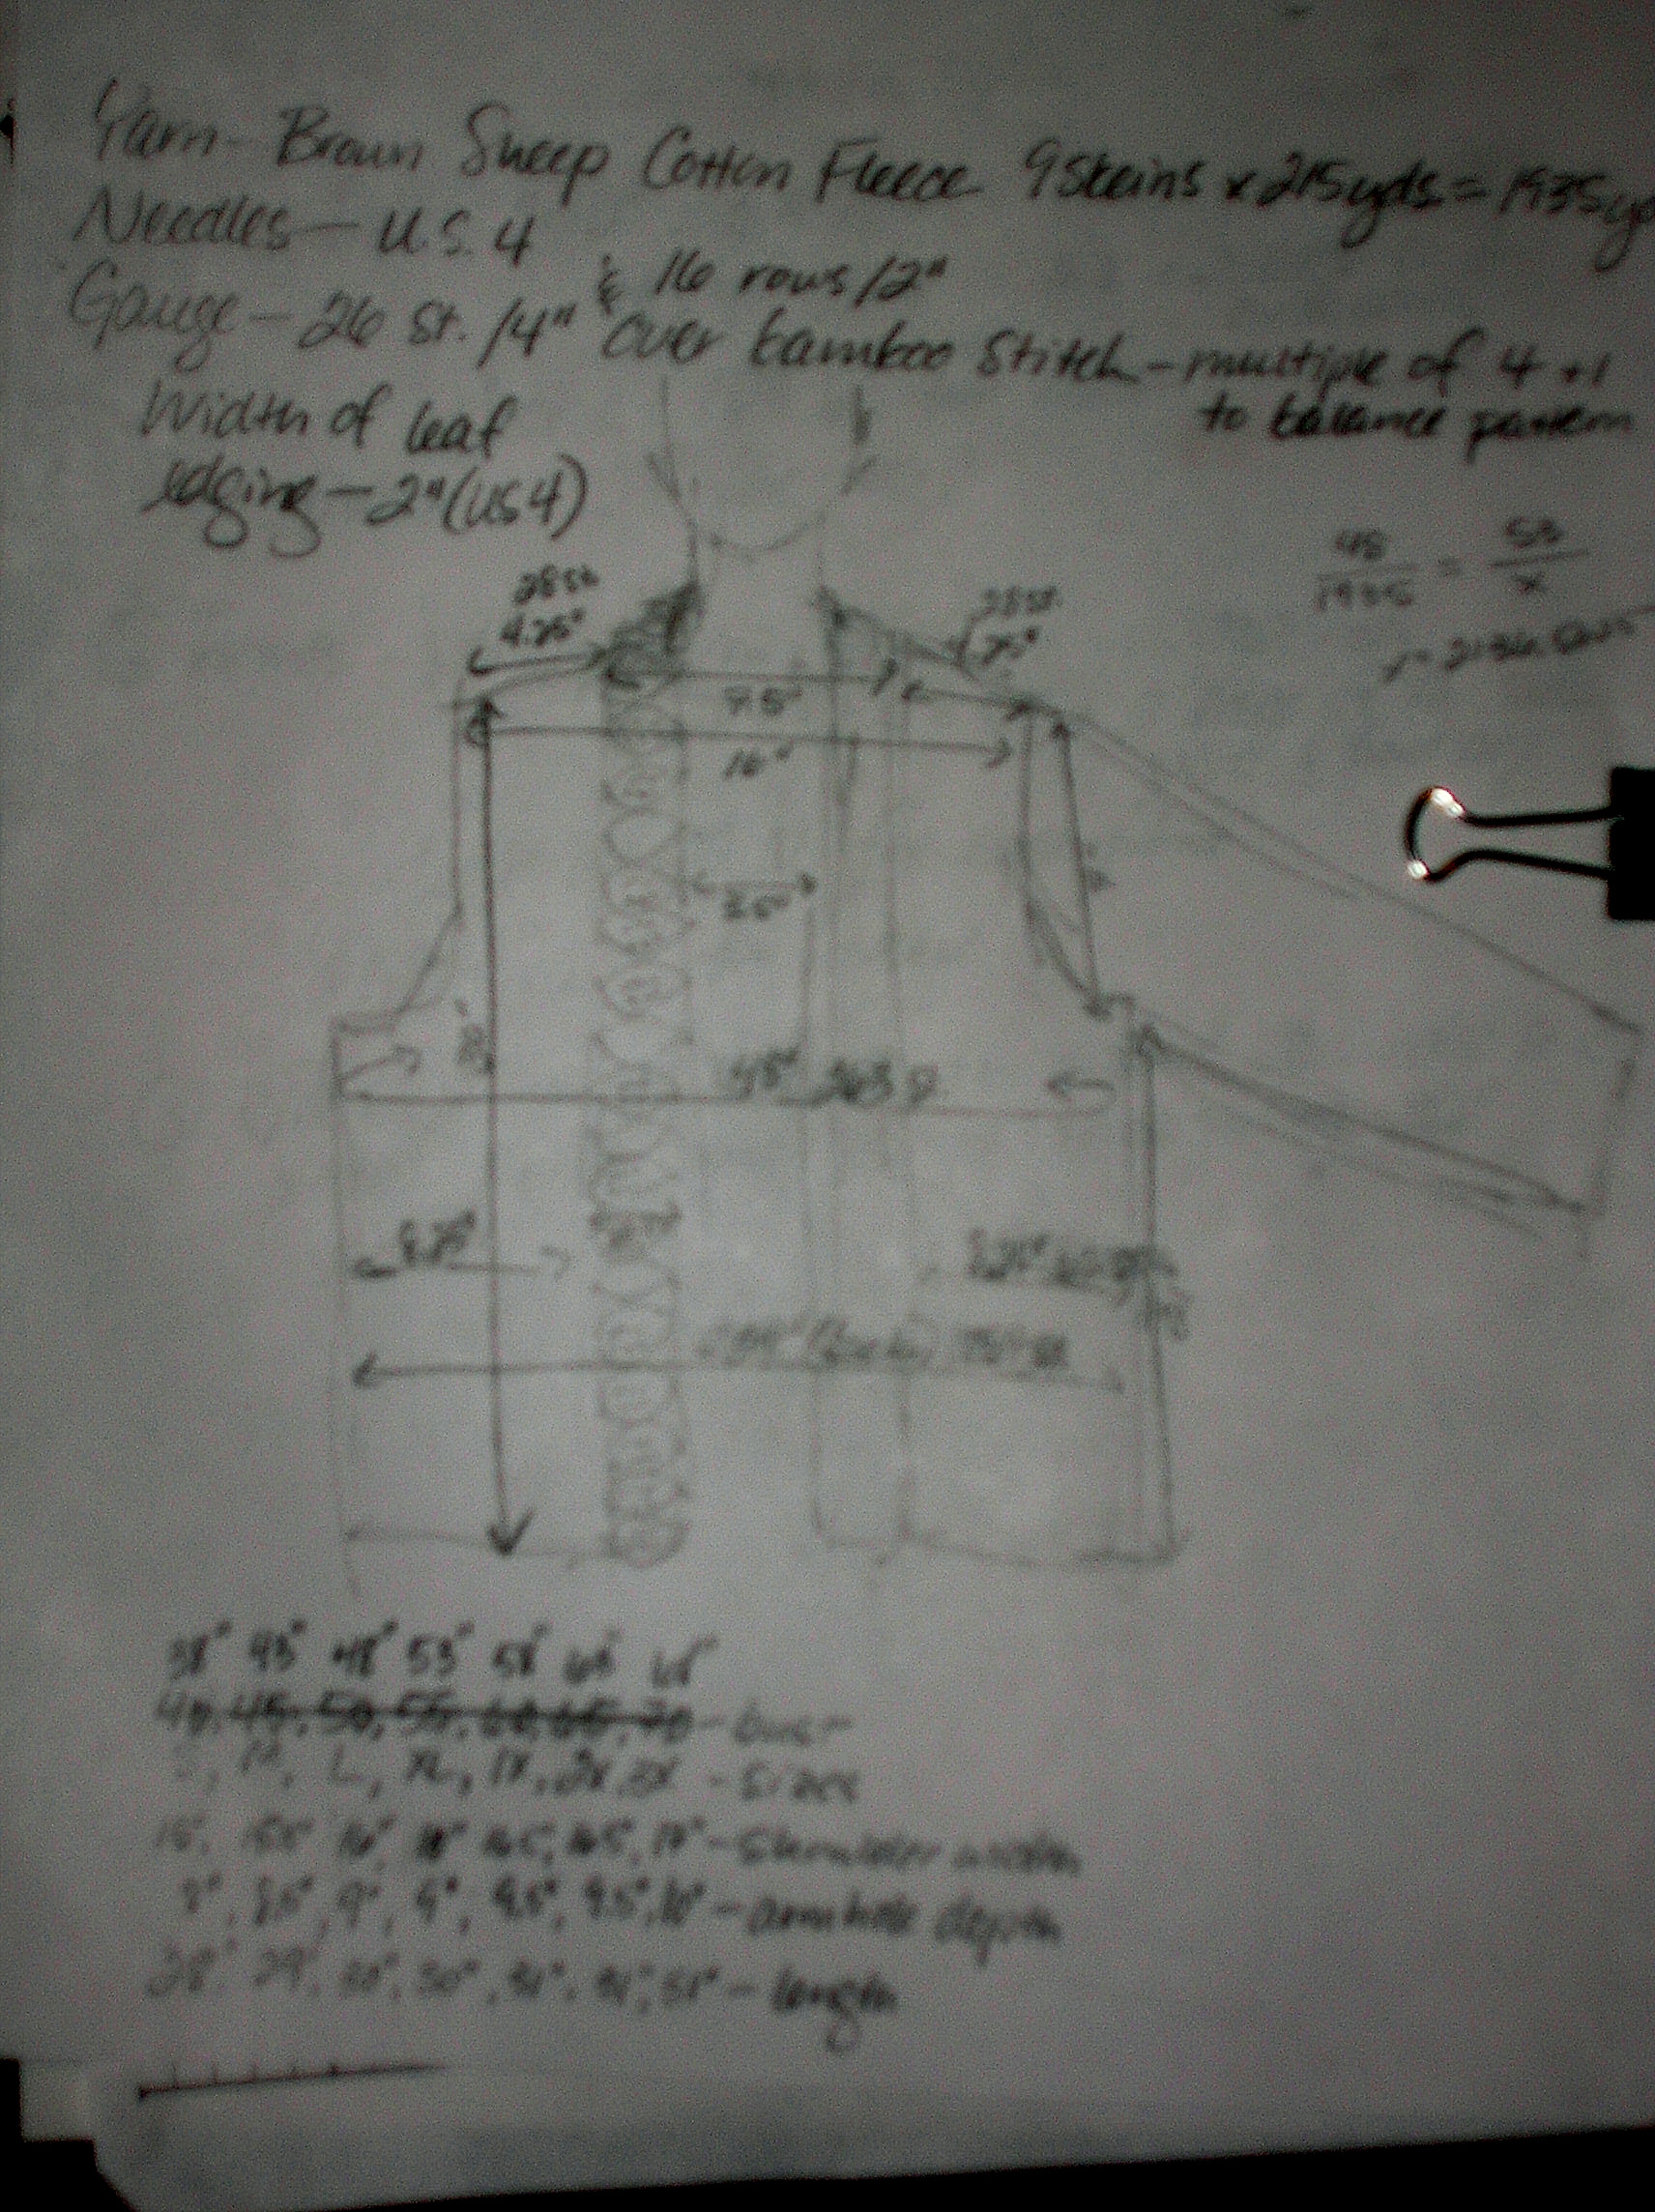 Yarn - Brown Sheep Cotton Fleece 9 Skeins x 215yds = 1935yd
Needles - U.S. 4
Gauge - 26 St. /4" & 16 rows/2"
over bamboo Stitch - multiple of 4 +1
to balance pattern
Width of leaf
edging - 2" (US 4)
53
x
28 St.
4.25"
28 St.
7.5"
16"
48"
8.25"
38" 43" 48" 53" 58" 63" 68"
40, 45, 50, 55, 60, 65, 70 - bust
L, XL, 1X, 2X, 3X - Sizes
16" 16.5, 16.5, 17" - Shoulder width
8", 8.5", 9", 9", 9.5", 9.5", 10" - armhole depth
28" 29", 30", 30", 31", 31", - length